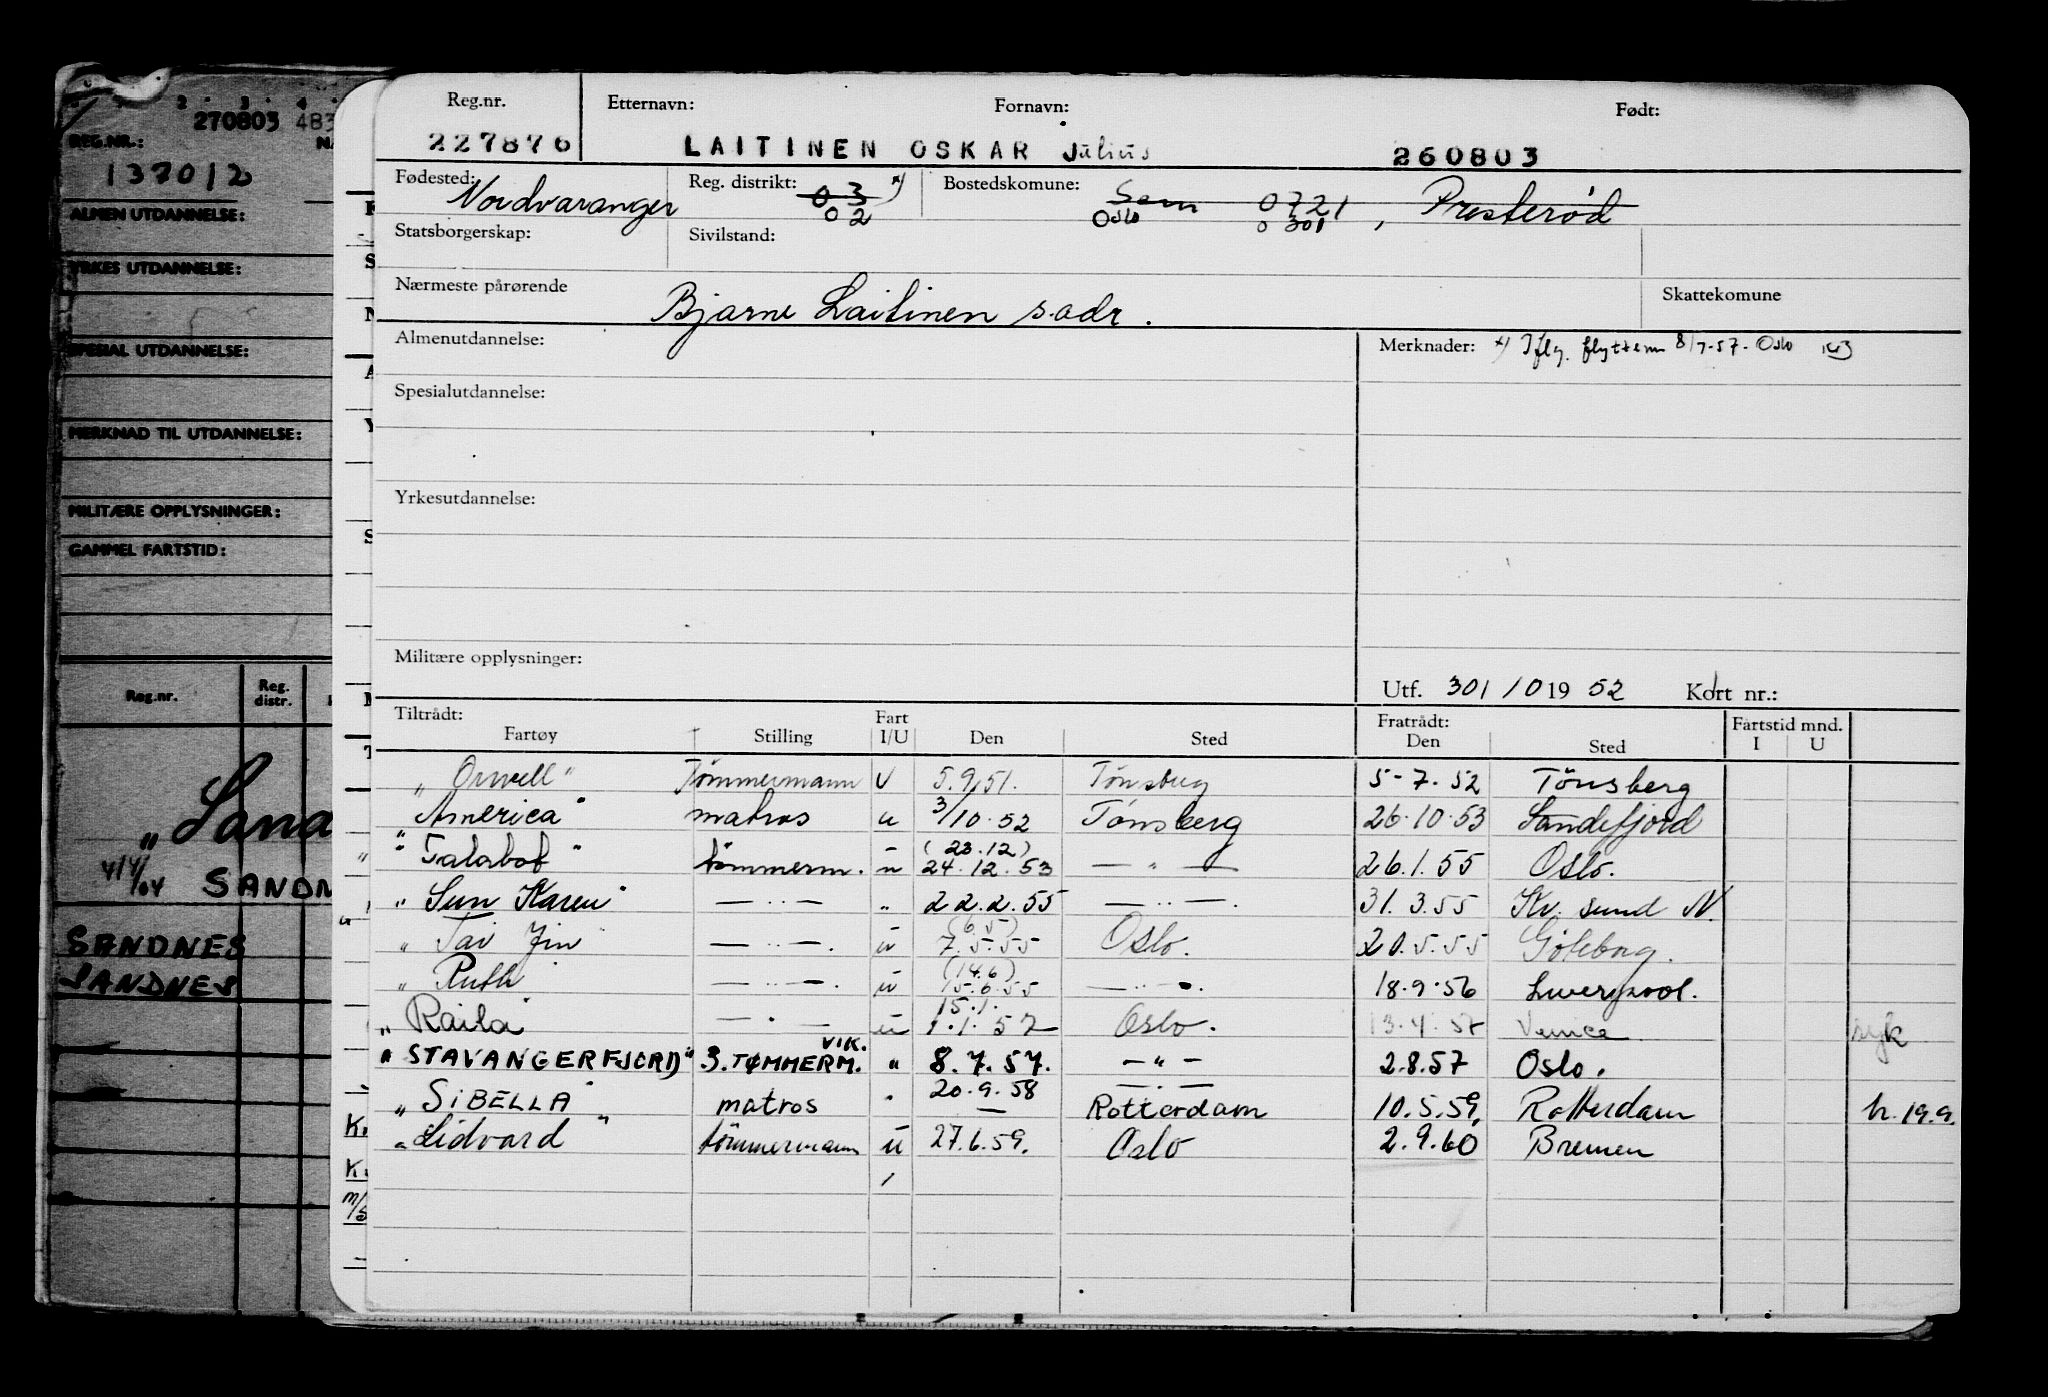 2 · 3 · 4
270803 483
REG.NR.:
137012
ALMEN UTDANNELSE:
YRKES UTDANNELSE:
SPESIAL UTDANNELSE:
MERKNAD TIL UTDANNELSE:
MILITÆRE OPPLYSNINGER:
GAMMEL FARTSTID:
Reg.nr. Reg. distr.
SANDNES
SANDNES
Reg.nr. Etternavn: Fornavn: Født:
227876 LAITINEN OSKAR Julius 260803
Fødested: Nordvaranger Reg. distrikt: 03 x) Bostedskomune: Sem 0721, Presterød
02 Oslo 0301
Statsborgerskap: Sivilstand:
Nærmeste pårørende Bjarne Laitinen s.adr. Skattekomune
Almenutdannelse: Merknader: x) Iflg. flyttem 8/7-57. Oslo
Spesialutdannelse:
Yrkesutdannelse:
Militære opplysninger:
Utf. 301/10 19 52 Kort nr.:
Tiltrådt: Fart Fratrådt: Fartstid mnd.
Fartøy Stilling I/U Den Sted Den Sted I U
"Orwell" Tømmermann U 5.9.51. Tönsberg 5-7.52 Tönsberg
"America" matros u 3/10.52 Tønsberg 26.10.53 Sandefjord
"Talabot" tömmerm. u (23.12) 24.12.53 — " — 26.1.55 Oslo.
"Sun Karen" — " — " 22.2.55 — " —. 31.3.55 Kr. sund N.
"Tai Jin" — " —. u (6.5) 7.5.55 Oslo. 20.5.55 Göteborg.
"Ruth" — " —. u (14.6) 15.6.55 — " —. 18.9.56 Liverpool.
"Raila" — " — u 15.1. 1.1.57 Oslo. 13.4.57 Venice syk
"STAVANGERFJORD" 3. TØMMERM. VIK. " 8.7.57. — " — 2.8.57 Oslo.
"SIBELLA" matros " 20.9.58 — Rotterdam 10.5.59. Rotterdam h. 19.9.
"Lidvard" tömmermann u 27.6.59. Oslo 2.9.60 Bremen